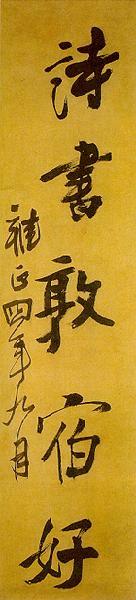 詩書敦宿好
雍正四年九月